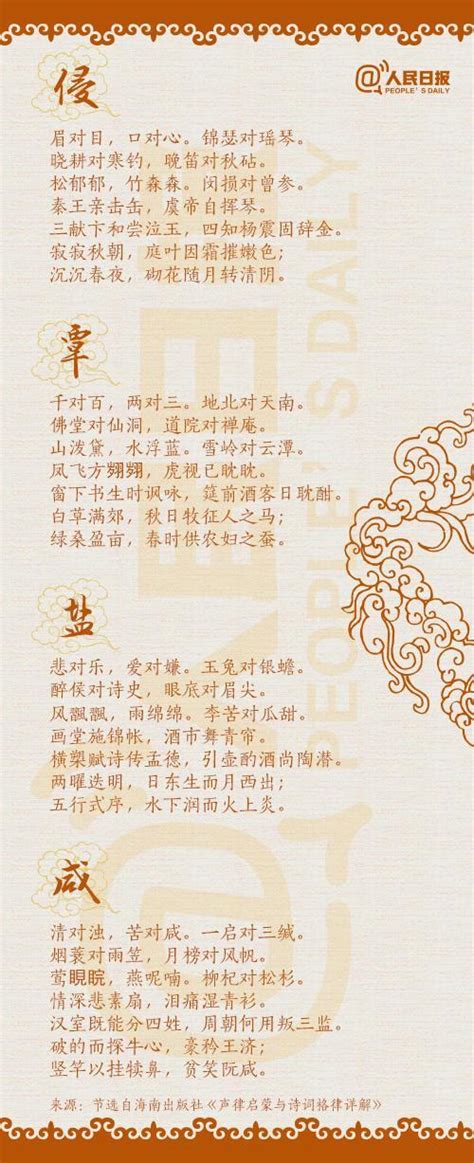 @人民日报
PEOPLE'S DAILY
侵
眉对目，口对心。锦瑟对瑶琴。
晓耕对寒钓，晚笛对秋砧。
松郁郁，竹森森。闵损对曾参。
秦王亲击缶，虞帝自挥琴。
三献卞和尝泣玉，四知杨震固辞金。
寂寂秋朝，庭叶因霜摧嫩色；
沉沉春夜，砌花随月转清阴。
覃
千对百，两对三。地北对天南。
佛堂对仙洞，道院对禅庵。
山泼黛，水浮蓝。雪岭对云潭。
凤飞方翙翙，虎视已眈眈。
窗下书生时讽咏，筵前酒客日耽酣。
白草满郊，秋日牧征人之马；
绿桑盈亩，春时供农妇之蚕。
盐
悲对乐，爱对嫌。玉兔对银蟾。
醉侯对诗史，眼底对眉尖。
风飘飘，雨绵绵。李苦对瓜甜。
画堂施锦帐，酒市舞青帘。
横槊赋诗传孟德，引壶酌酒尚陶潜。
两曜迭明，日东生而月西出；
五行式序，水下润而火上炎。
咸
清对浊，苦对咸。一启对三缄。
烟蓑对雨笠，月榜对风帆。
莺睍睆，燕呢喃。柳杞对松杉。
情深悲素扇，泪痛湿青衫。
汉室既能分四姓，周朝何用叛三监。
破的而探牛心，豪矜王济；
竖竿以挂犊鼻，贫笑阮咸。
来源：节选自海南出版社《声律启蒙与诗词格律详解》